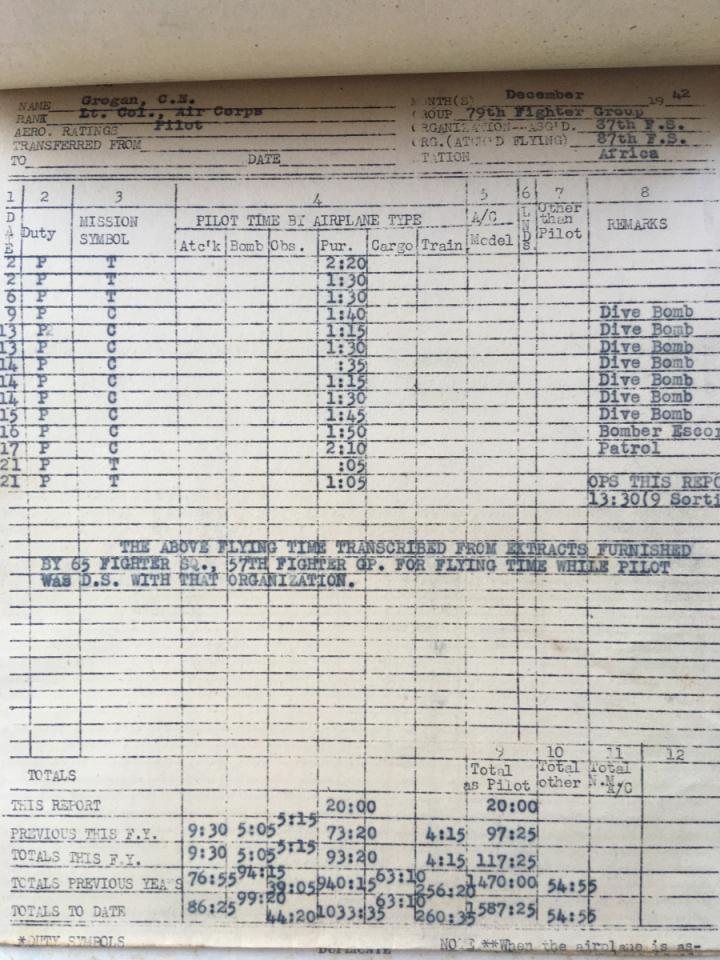 NAME Grogan, C.N. MONTH(S) December 19 42
RANK Lt. Col., Air Corps GROUP 79th Fighter Group
AERO. RATINGS Pilot ORGANIZATION--ASG'D. 87th F.S.
TRANSFERRED FROM ORG.(ATCH'D FLYING) 87th F.S.
TO DATE STATION Africa
1 2 3 4 5 6 7 8
DATE Duty MISSION SYMBOL PILOT TIME BY AIRPLANE TYPE A/C Model LNDS. Other than Pilot REMARKS
Atc'k Bomb Obs. Pur. Cargo Train
2 P T 2:20
2 P T 1:30
6 P T 1:30
9 P C 1:40 Dive Bomb
13 P C 1:15 Dive Bomb
13 P C 1:30 Dive Bomb
14 P C :35 Dive Bomb
14 P C 1:15 Dive Bomb
14 P C 1:30 Dive Bomb
15 P C 1:45 Dive Bomb
16 P C 1:50 Bomber Escor
17 P C 2:10 Patrol
21 P T :05
21 P T 1:05 OPS THIS REPO
13:30(9 Sorti
THE ABOVE FLYING TIME TRANSCRIBED FROM EXTRACTS FURNISHED
BY 65 FIGHTER SQ., 57TH FIGHTER GP. FOR FLYING TIME WHILE PILOT
WAS D.S. WITH THAT ORGANIZATION.
9 10 11 12
TOTALS Total as Pilot Total other Total N.M. A/C
THIS REPORT 20:00 20:00
PREVIOUS THIS F.Y. 9:30 5:05 5:15 73:20 4:15 97:25
TOTALS THIS F.Y. 9:30 5:05 5:15 93:20 4:15 117:25
TOTALS PREVIOUS YEARS 76:55 94:15 39:05 940:15 63:10 256:20 1470:00 54:55
TOTALS TO DATE 86:25 99:20 44:20 1033:35 63:10 260:35 1587:25 54:55
*DUTY SYMBOLS DUPLICATE NOTE **When the airplane is as-